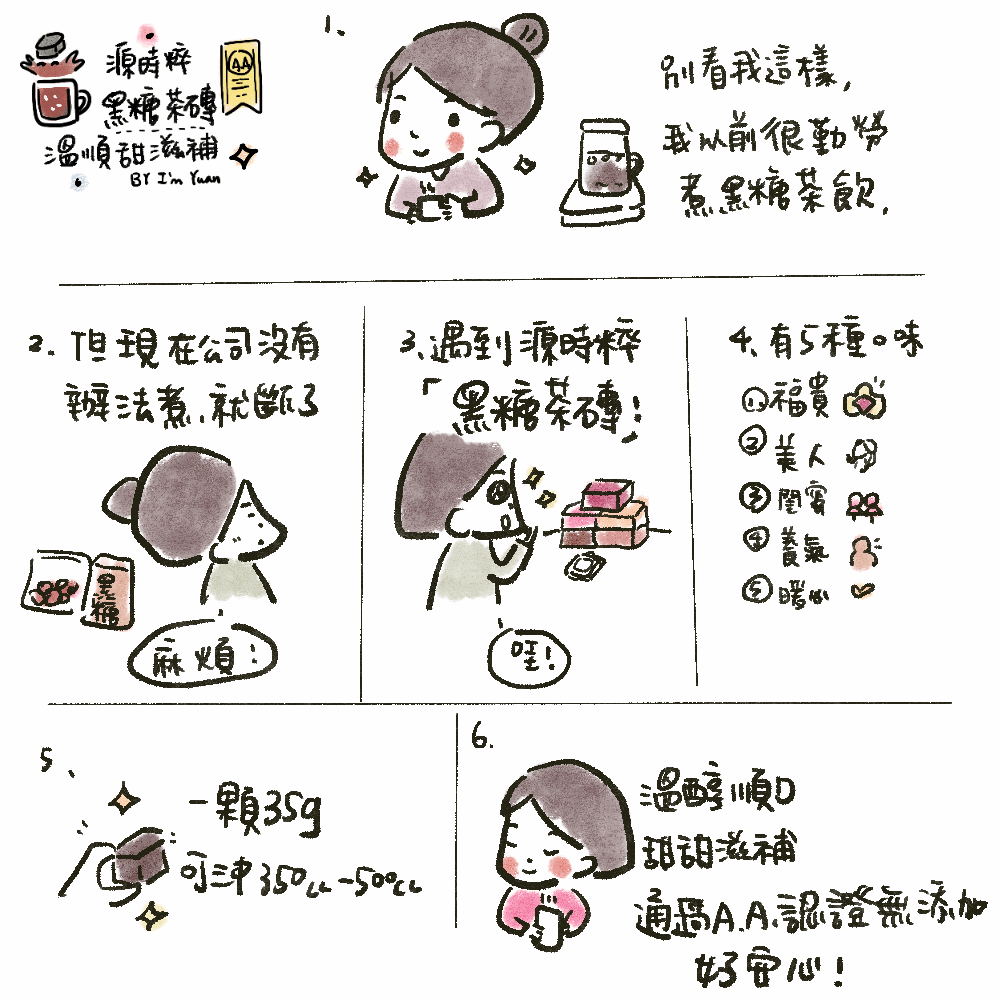 源時粹
黑糖茶磚
溫順甜滋補
BY I'm Yuan
AA
1、
別看我這樣,
我以前很勤勞
煮黑糖茶飲,
2、但現在公司沒有
辦法煮,就斷了
黑糖
麻煩!
3、遇到源時粹
「黑糖茶磚!
哇!
4、有5種口味
①福貴
②美人
③閨蜜
④養氣
⑤暖心
5、
一顆35g
可沖350cc-500cc
6.
溫醇順口
甜甜滋補
通過A.A.認證無添加
好安心!